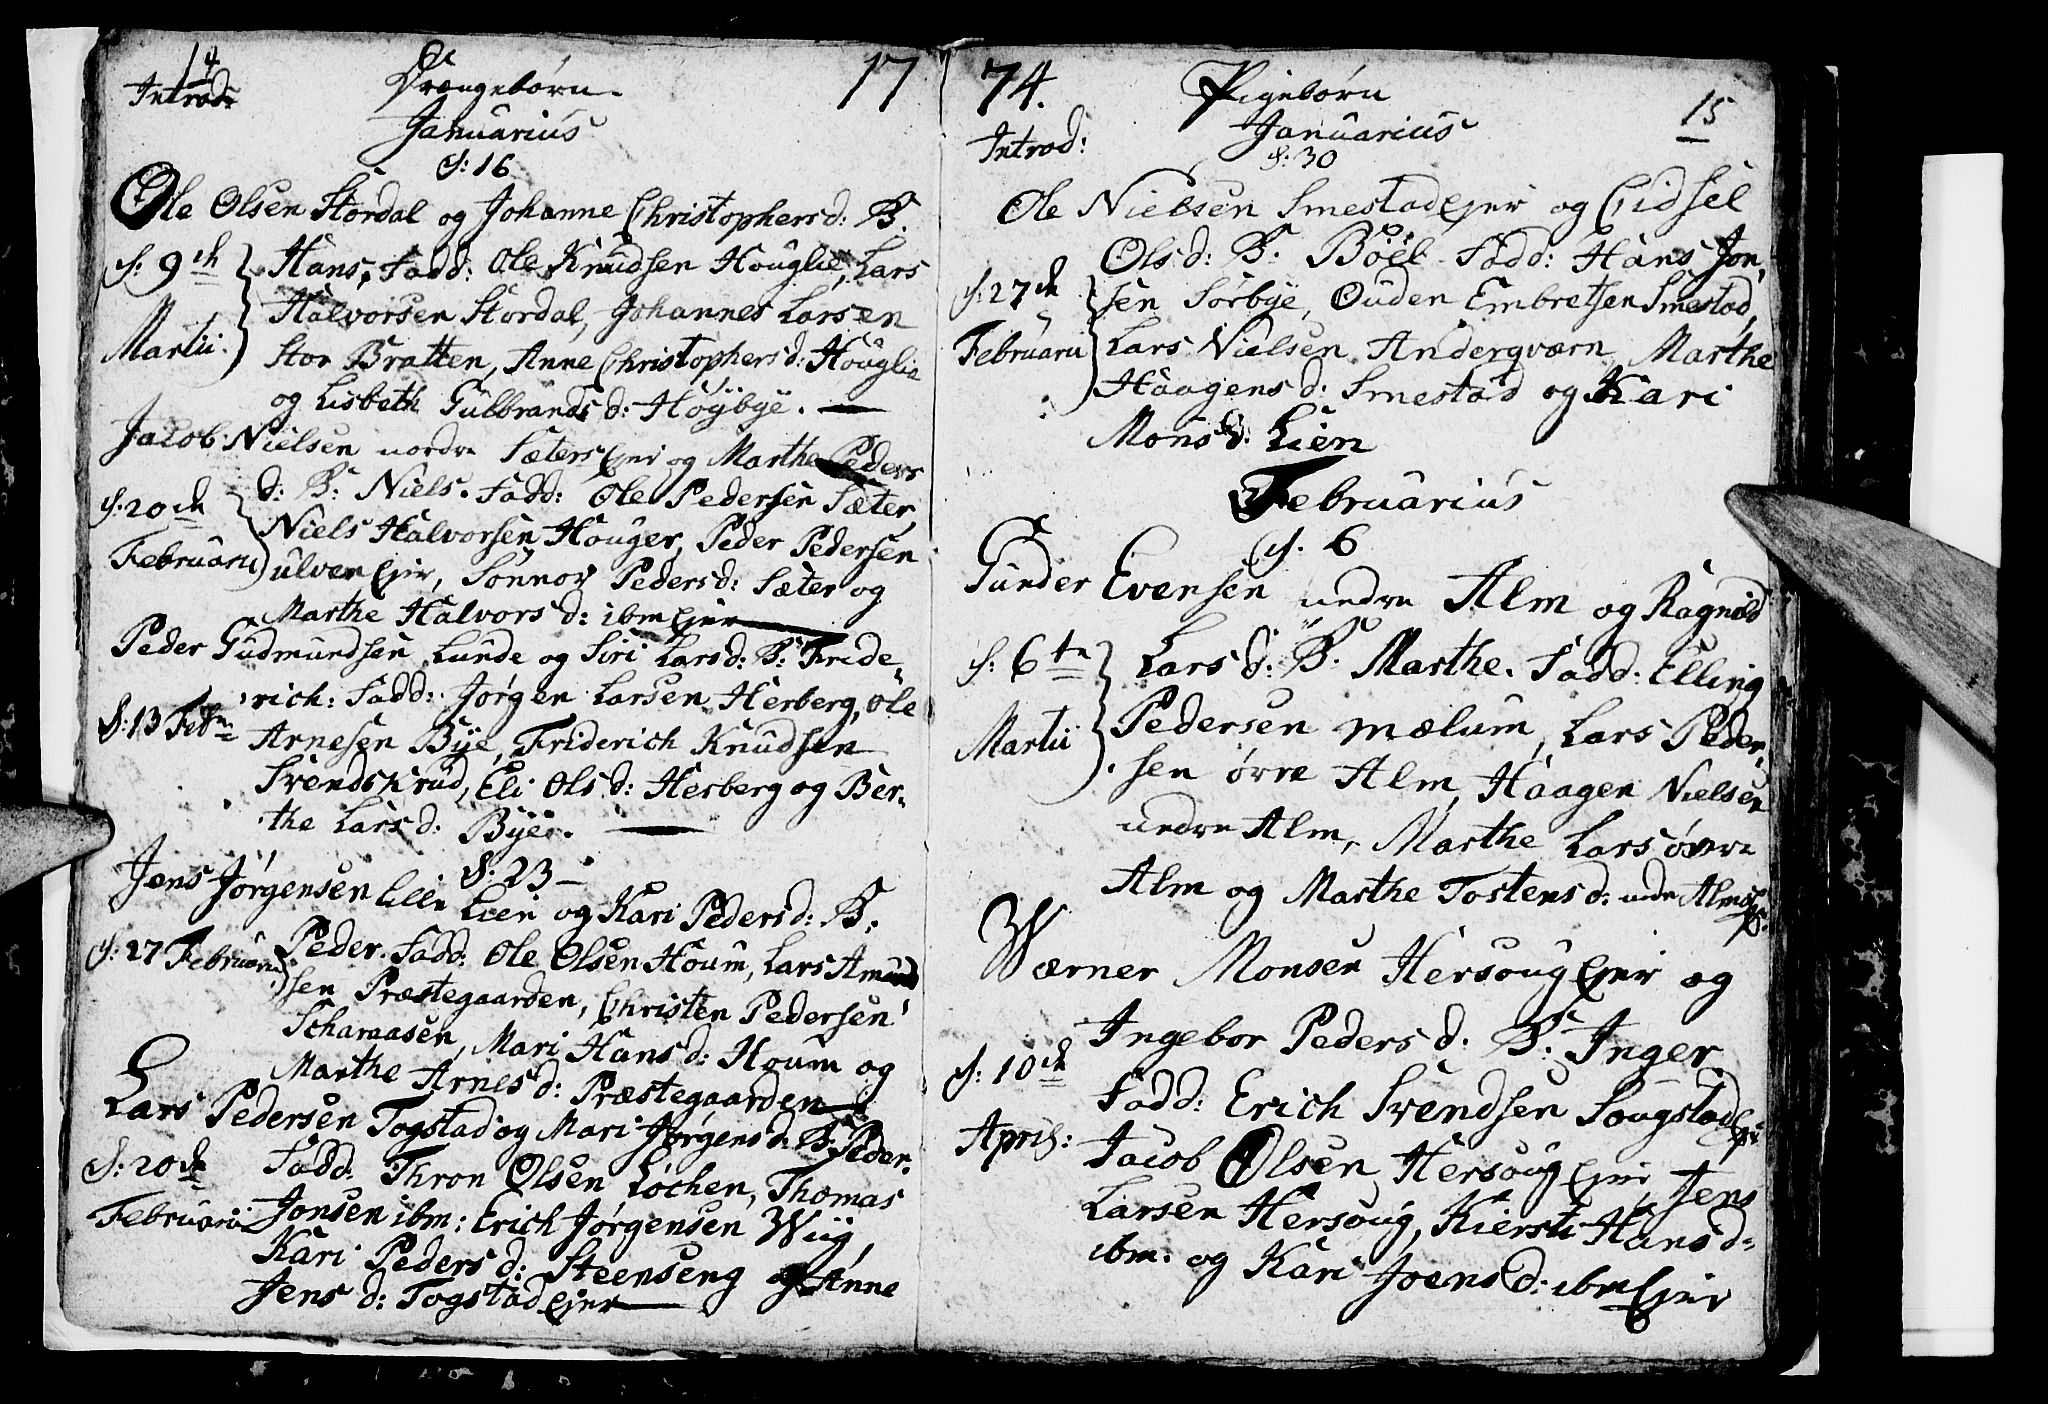 14
Introd:
Drengebørn.
17
Januarius
d: 16
Ole Olsen Stordal og Johanne Christophersd: B.
d: 9de Hans, Fadd: Ole Knudsen Houglie, Lars
Halvorsen Stordal, Johannes Larsen
Martii. Stor Bratten, Anne Christophersd: Houglie
og Lisbeth Gulbrandsd: Høybye.
Jacob Nielsen nordre Sæters Ejer og Marthe Peders
d: B: Niels. Fadd: Ole Pedersen Sæter,
d: 20de Niels Halvorsen Houger, Peder Pedersen
Februarii ulven Ejer, Sønnov Pedersd: Sæter og
Marthe Halvorsd: ibm Ejer
Peder Gudmundsen Lunde og Siri Larsd: B: Fride,
rich: Fadd: Jørgen Larsen Herberg, Ole
d: 13 Febr: Arnesen Bye, Friderich Knudsen
Svendskrud, Eli Olsd: Herberg og Ber,
the Larsd: Bye.
d: 23
Jens Jørgensen lille Lien og Kari Pedersd: B:
d: 27 Februarii Peder. Fadd: Ole Olsen Houm, Lars Amund
sen Præstegaarden, Christen Pedersen
Scharaasen, Mari Hansd: Houm og
Marthe Arnesd: Præstegaarden
Lars Pedersen Togstad og Mari Jørgensd: B: Peder.
d: 20de Fadd: Thron Olsen Løchen, Thomas
Februarii Jonsen ibm: Erich Jørgensen Wiig,
Kari Pedersd: Steenseng og Anne
Jensd: Togstad Ejer
74.
Pigebørn
15
Introd:
Januarius
d: 30
Ole Nielsen Smestad Ejer og Eidsel
Olsd: B. Böel Fadd: Hans Jon,
d: 27de sen Sørbye, Ouden Embretsen Smestad,
Februarii Lars Nielsen Anderqværn, Marthe
Haagensd: Smestad og Kari
Monsd: Lien
Februarius
d. 6
Gunder Evensen nedre Alm og Ragnild
d: 6te Larsd: B. Marthe. Fadd: Elling
Pedersen Mælum, Lars Peder,
Martii sen øvre Alm, Haagen Nielsen
nedre Alm, Marthe Lars øvre
Alm og Marthe Tostensd: nedre Alms
Wærner Monsen Hersoug Ejer og
Ingebor Pedersd: B: Inger
d: 10de Fadd: Erich Svendsen Sougstad
April: Jacob Olsen Hersoug Ejer, Jens
Larsen Hersoug, Kiersti Hansd:
ibm. og Kari Joensd: ibm Ejer